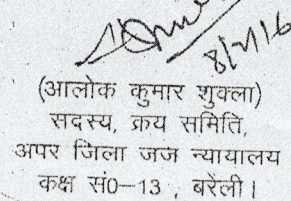 8/7/16
(आलोक कुमार शुक्ला)
सदस्य, क्रय समिति,
अपर जिला जज न्यायालय
कक्ष सं0-13 , बरेली।